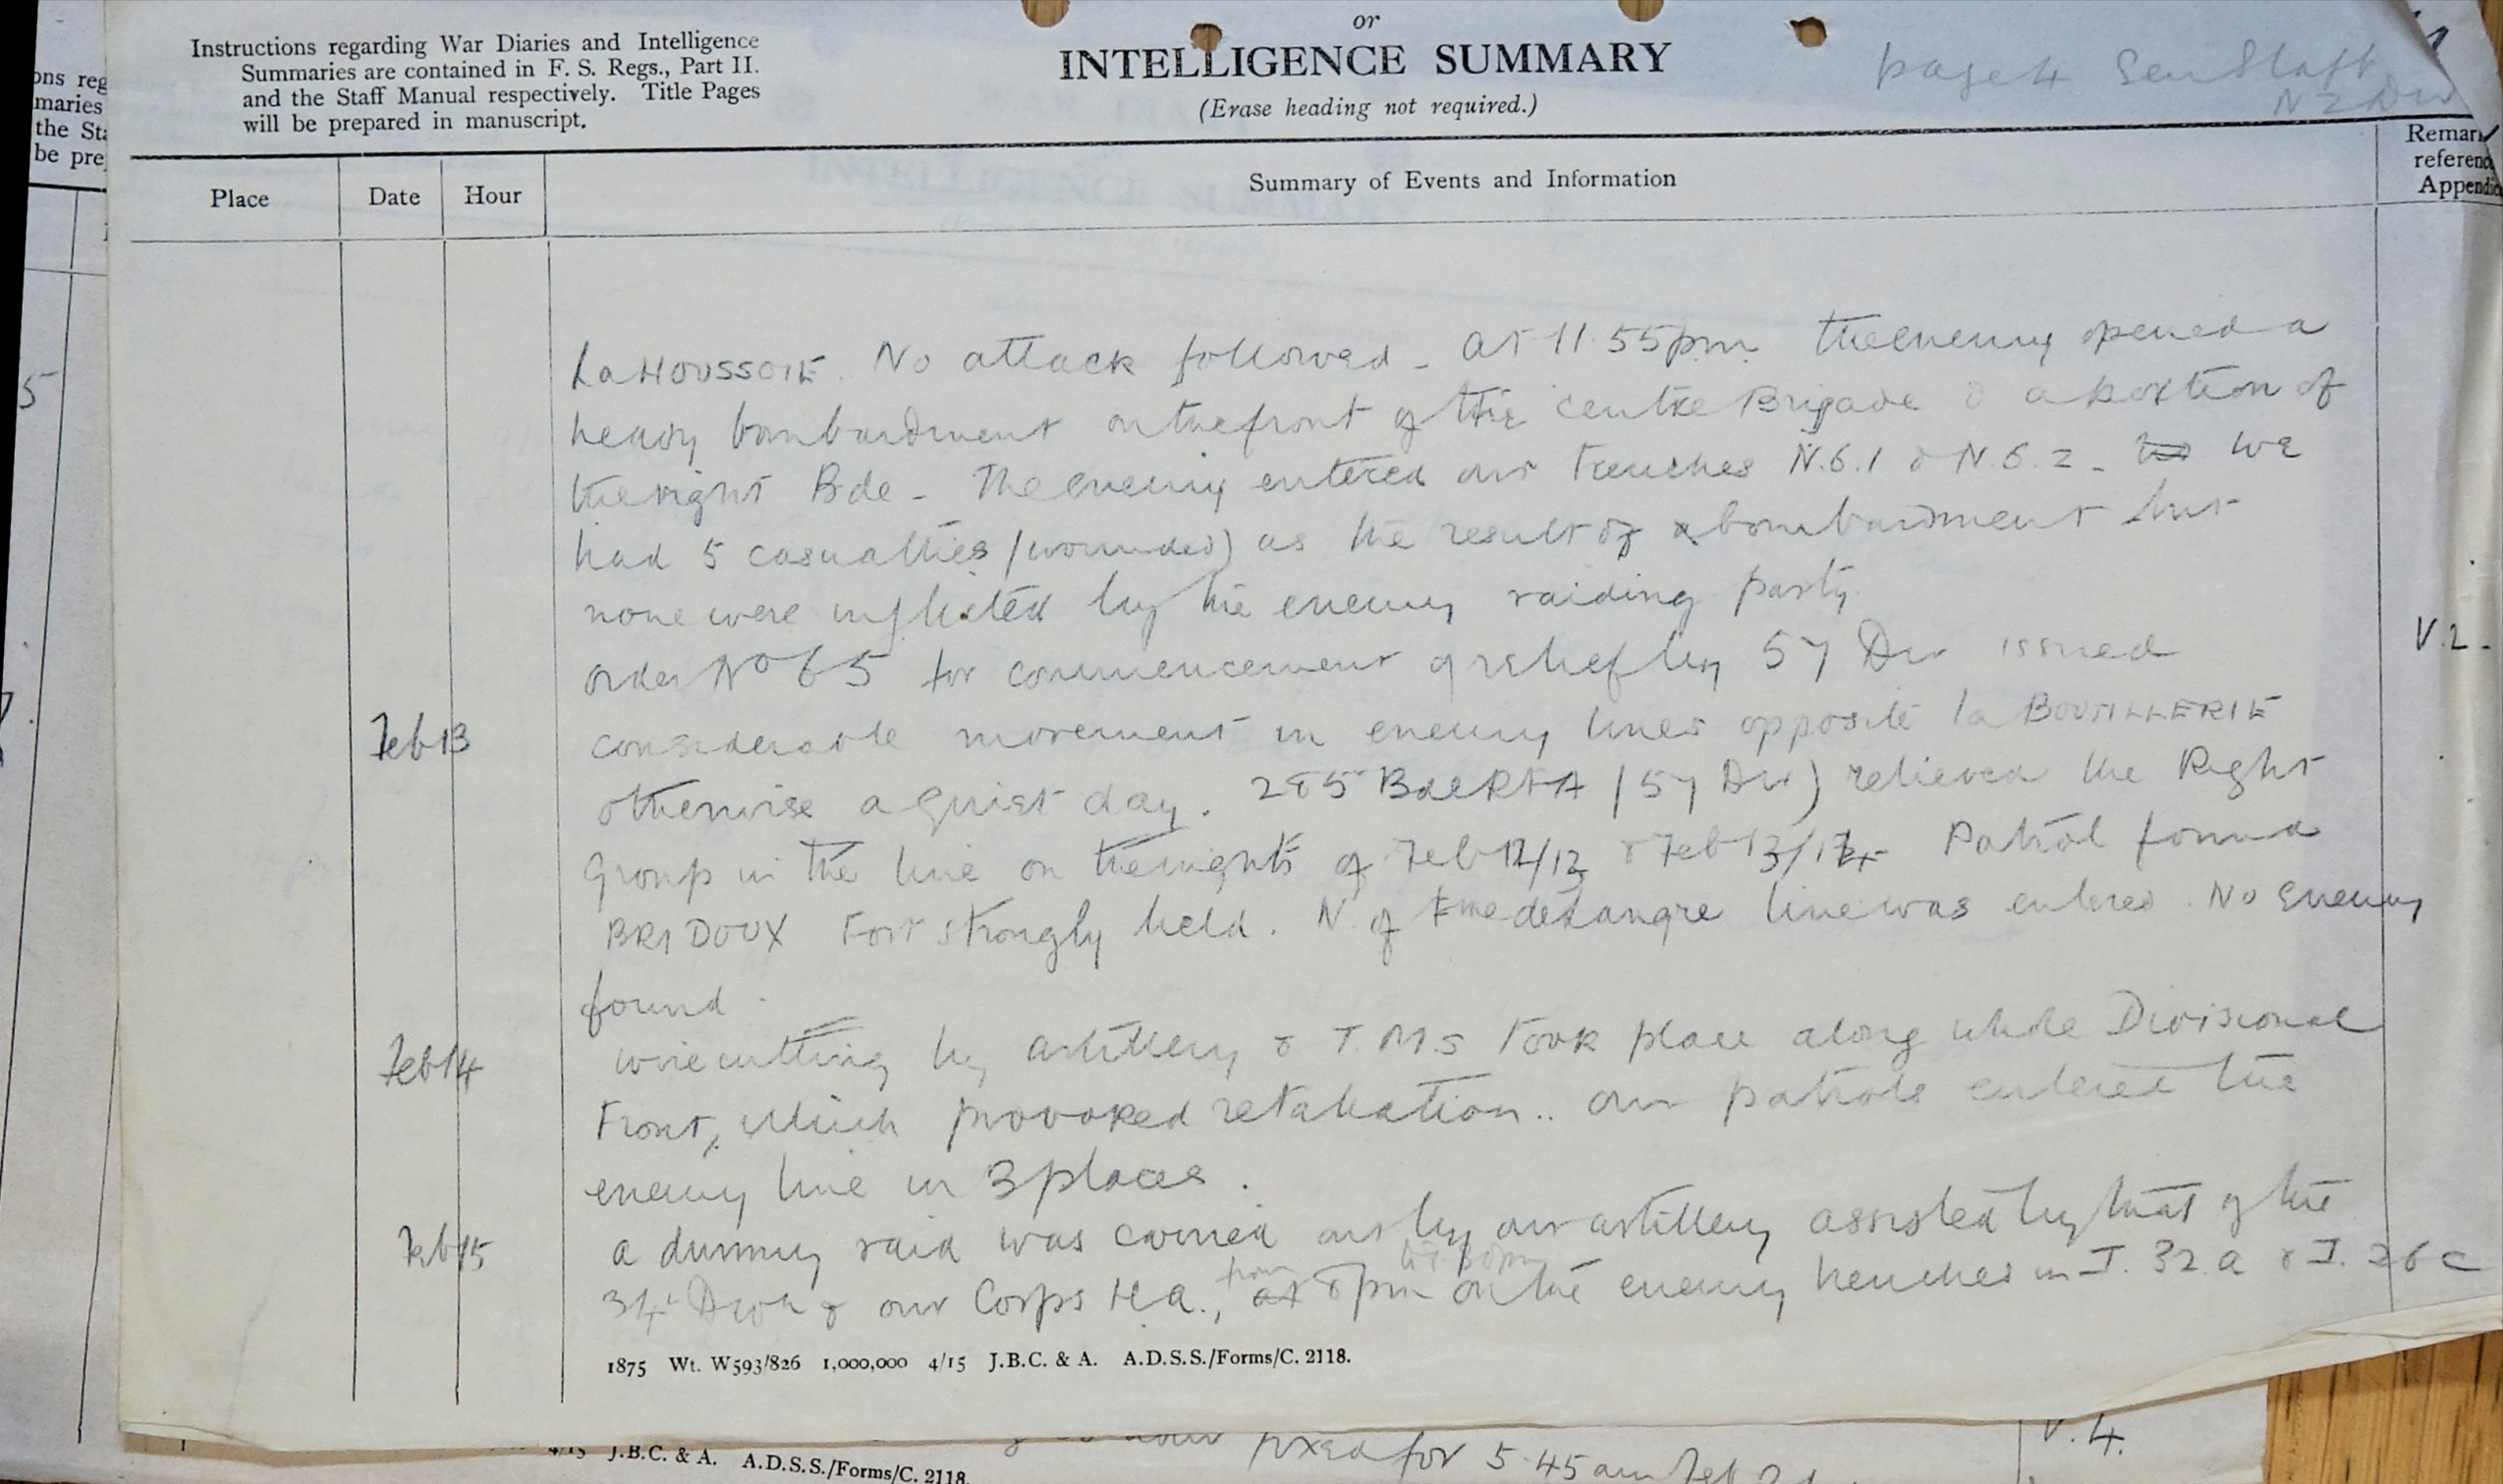 or
Instructions regarding War Diaries and Intelligence
Summaries are contained in F. S. Regs., Part II.
and the Staff Manual respectively. Title Pages
will be prepared in manuscript.
INTELLIGENCE SUMMARY
(Erase heading not required.)
page 4 Gen Staff
NZ Div
Place Date Hour Summary of Events and Information
Remar
referenc
Appendic
La HOUSSOIE. No attack followed - At 11 55pm the enemy opened a
heavy bombardment on the front of the centre Brigade & a portion of
the right Bde - The enemy entered our trenches N.6.1 & N.6.2 - we
had 5 casualties (wounded) as the result of bombardment but
none were inflicted by the enemy raiding party.
Order No 65 for commencement of relief by 57 Div issued V.2.
Feb 13 considerable movement in enemy lines opposite la BOUTILLERIE
otherwise a quiet day. 285 Bde RFA (57 Div) relieved the Right
Group in the line on the nights of Feb 12/13 & Feb 13/14 Patrol found
BRIDOUX Fort strongly held. N. of line was entered. No enemy
found.
Feb 14 wirecutting by artillery & T.M.s took place along whole Divisional
Front, which provoked retaliation.. our patrols entered the
enemy line in 3 places.
Feb 15 a dummy raid was carried out by our artillery assisted by that of the
34th Divn & our Corps H.a., from at 8pm on the enemy trenches in I. 32 a & I. 26 c
1875 Wt. W593/826 1,000,000 4/15 J.B.C. & A. A.D.S.S./Forms/C. 2118.
fixed for 5.45 am Feb 21 V.4.
4/15 J.B.C. & A. A.D.S.S./Forms/C. 2118.
ons reg
maries
the Sta
be pre
5